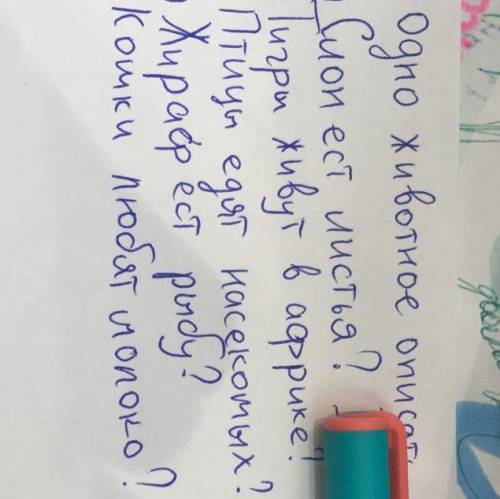 Одно животное описат
Слон ест листья?
Тигры живут в африке?
Птицы едят насекомых?
Жираф ест рыбу?
Кошки любят молоко?